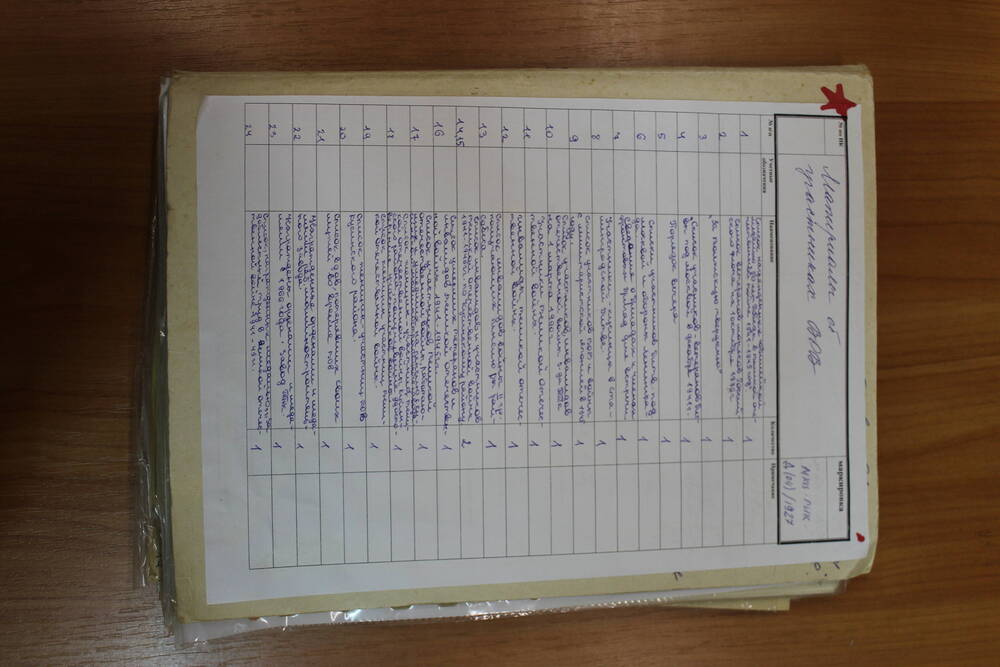 № по НК
Материалы об
участниках ВОВ
маркировка
Д(04)/1927
№ п/п Учетные обозначения Наименование Количество Примечание
1 Список награжденных юбилейной
медалью 50 лет Победы в Великой оте-
чественной войне 1941-1945 год" 1
2 Список ветеранов моряков Россий-
ского флота на 1 октября 1 
3 "За Воятскую твердыню" 1
4 "Список участников - ветеранов бит-
вы под Москвой в декабре 1941 г. 1
5 Порядок вечера 1
6 Списки участников битв под
Москвой и обороны Ленингра-
да 1
7 Сведения о бригадах и членах
фронтовых бригад для встречи 1
8 Участники - кусинцы в Ста-
лингродской битве. 1
9 Список участников ВОВ и войны
с милитаристской Японией в 1945
году. 1
10 Список участников, инвалидов
отечественной войны
на 1 марта 1990 г. 1
11 Участники Великой отечес-
твенной война. 1
12 Инвалиды Великой отечес-
твенной война. 1
13 Список инвалидов войны II гр.
получающих пенсию рк рай-
собеса. 1
14,15 Список инвалидов и участников
Великой отечественной войны
1941-1945 г. по Кусинскому району 2
16 Список умерших ветеранов и
инвалидов Великой отечествен-
ной война 1941-1945 г. 1
17 Список участников Великой
отечественной войны, 1
18 Список женщин - участниц Вели-
кой отечественной войны Кусин-
ского района, получившие удосто-
верение участников войны. 1
19 Список женщин участниц Вели-
кой отечественной война. 1
20 Список женщин - участниц ВОВ
Кусинского района. 1
21 Список вдов, потерявших своих
мужей во время ВОВ 1
22 Награжденные орденами и меда-
лями раб. машиностроитель-
ного завода. 1
23 Награждены орденами и меда-
лями с 1966 года. Завод 1
24 Список награжденных медалью "За
доблестный труд в Великой отечес-
твенной войне 1941-45 г. 1